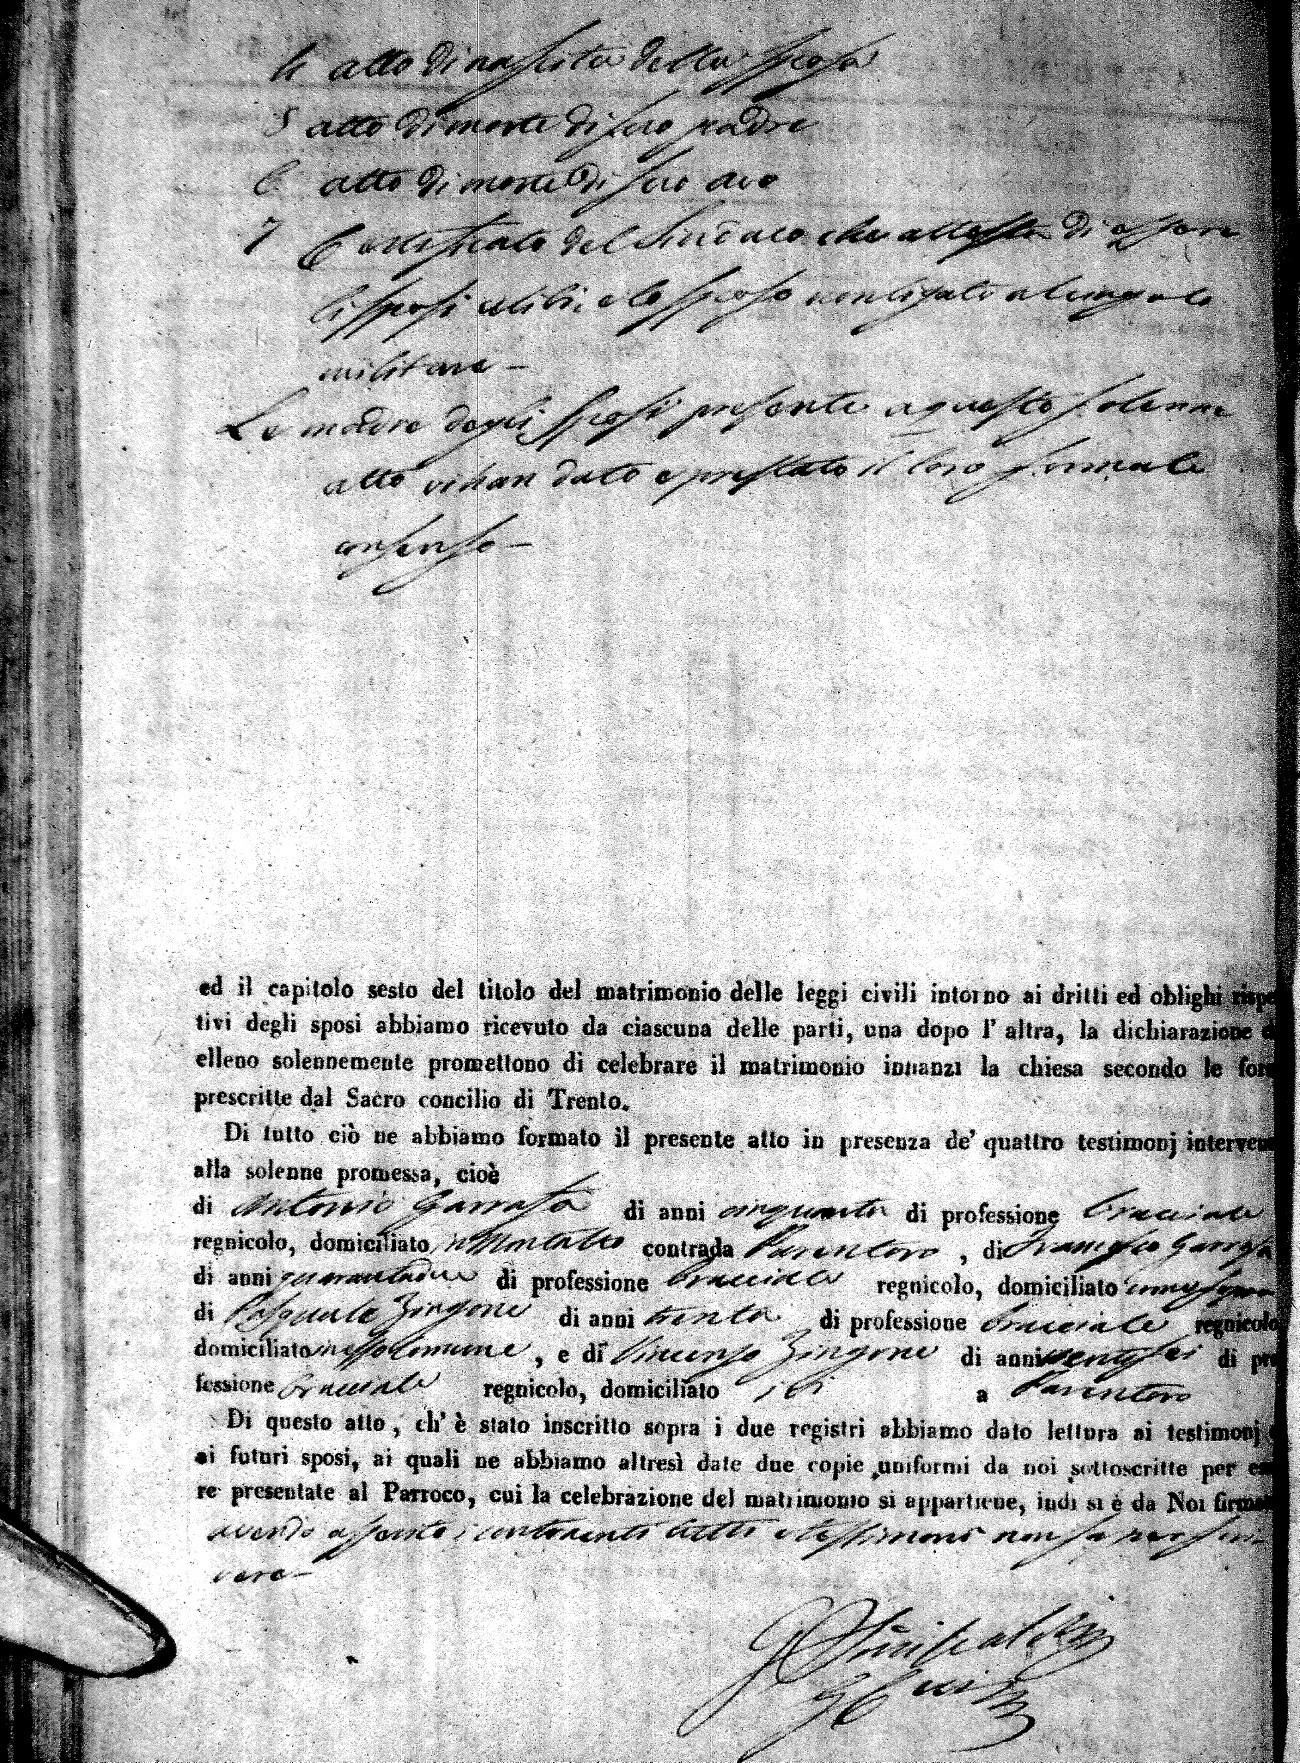 4 atto di nascita della sposa
5 atto di morte di suo padre
6 atto di morte di suo avo
7 Certificato del Sindaco che attesta di essere
li sposi celibi, e lo sposo non ligato al cingolo
militare –
Le madre degli sposi presenti a questo solenne
atto vi han dato e prestato il loro formale
consenso –
ed il capitolo sesto del titolo del matrimonio delle leggi civili intorno ai dritti ed oblighi rispe
tivi degli sposi abbiamo ricevuto da ciascuna delle parti, una dopo l' altra, la dichiarazione
elleno solennemente promettono di celebrare il matrimonio innanzi la chiesa secondo le for
prescritte dal Sacro concilio di Trento.
Di tutto ciò ne abbiamo formato il presente atto in presenza de' quattro testimonj interven
alla solenne promessa, cioè
di Antonio Garrafa di anni cinquanta di professione bracciale
regnicolo, domiciliato in Montalto contrada Parentoro , di Francesco Garrafa
di anni quarantadue di professione bracciale regnicolo, domiciliato
di Pasquale Zingone di anni trenta di professione bracciale regnicolo
domiciliato nesso comune , e di Vincenzo Zingone di anni ventisei di pro
fessione bracciale regnicolo, domiciliato ivi a Parentoro
Di questo atto, ch' è stato inscritto sopra i due registri abbiamo dato lettura ai testimonj
ai futuri sposi, ai quali ne abbiamo altresì date due copie uniformi da noi sottoscritte per es
re presentate al Parroco, cui la celebrazione del matrimonio si appartiene, indi si è da Noi firma
avendo assento i contraenti tutti e testimoni non sa per scri-
vere –